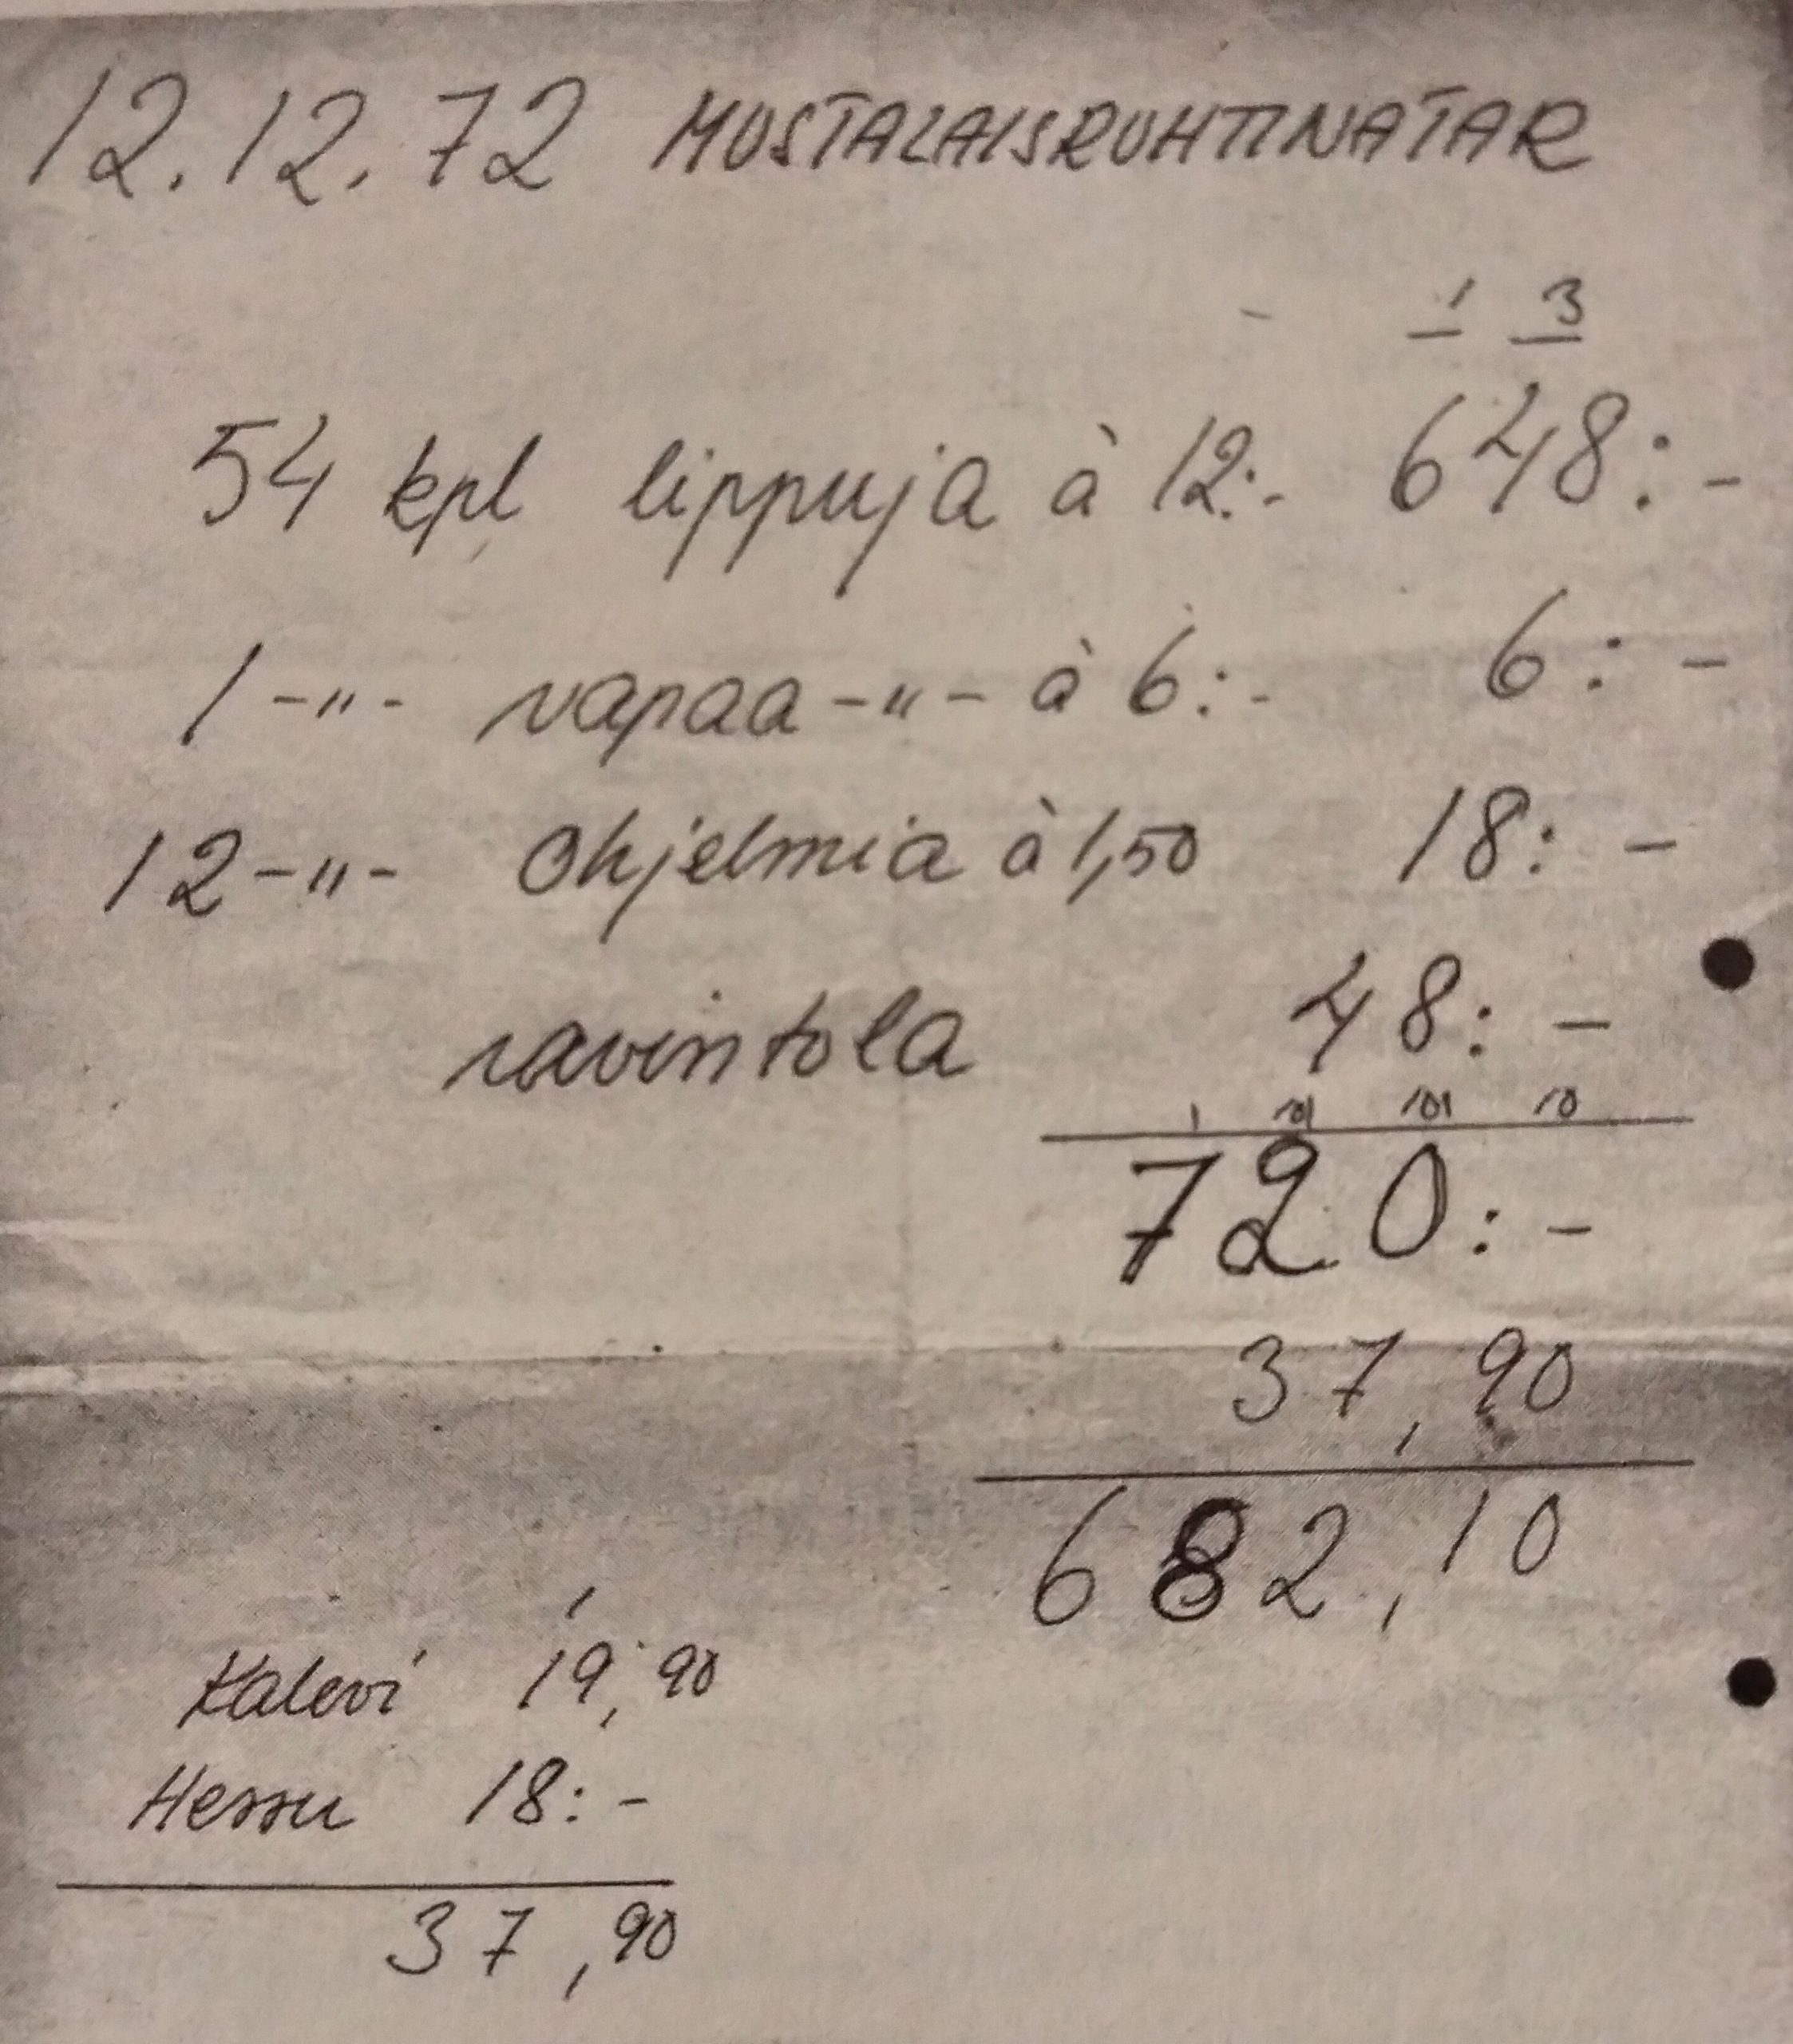 12.12.72 MUSTALAISRUHTINATAR
1 3
54 kpl lippuja à 12:- 648:-
1 -"- vapaa -"- à 6:- 6:-
12 -"- Ohjelmia à 1,50 18:-
ravintola 48:-
1 101 101 10
720:-
37,90
682,10
1
Kalevi 19,90
Hessu 18:-
37,90